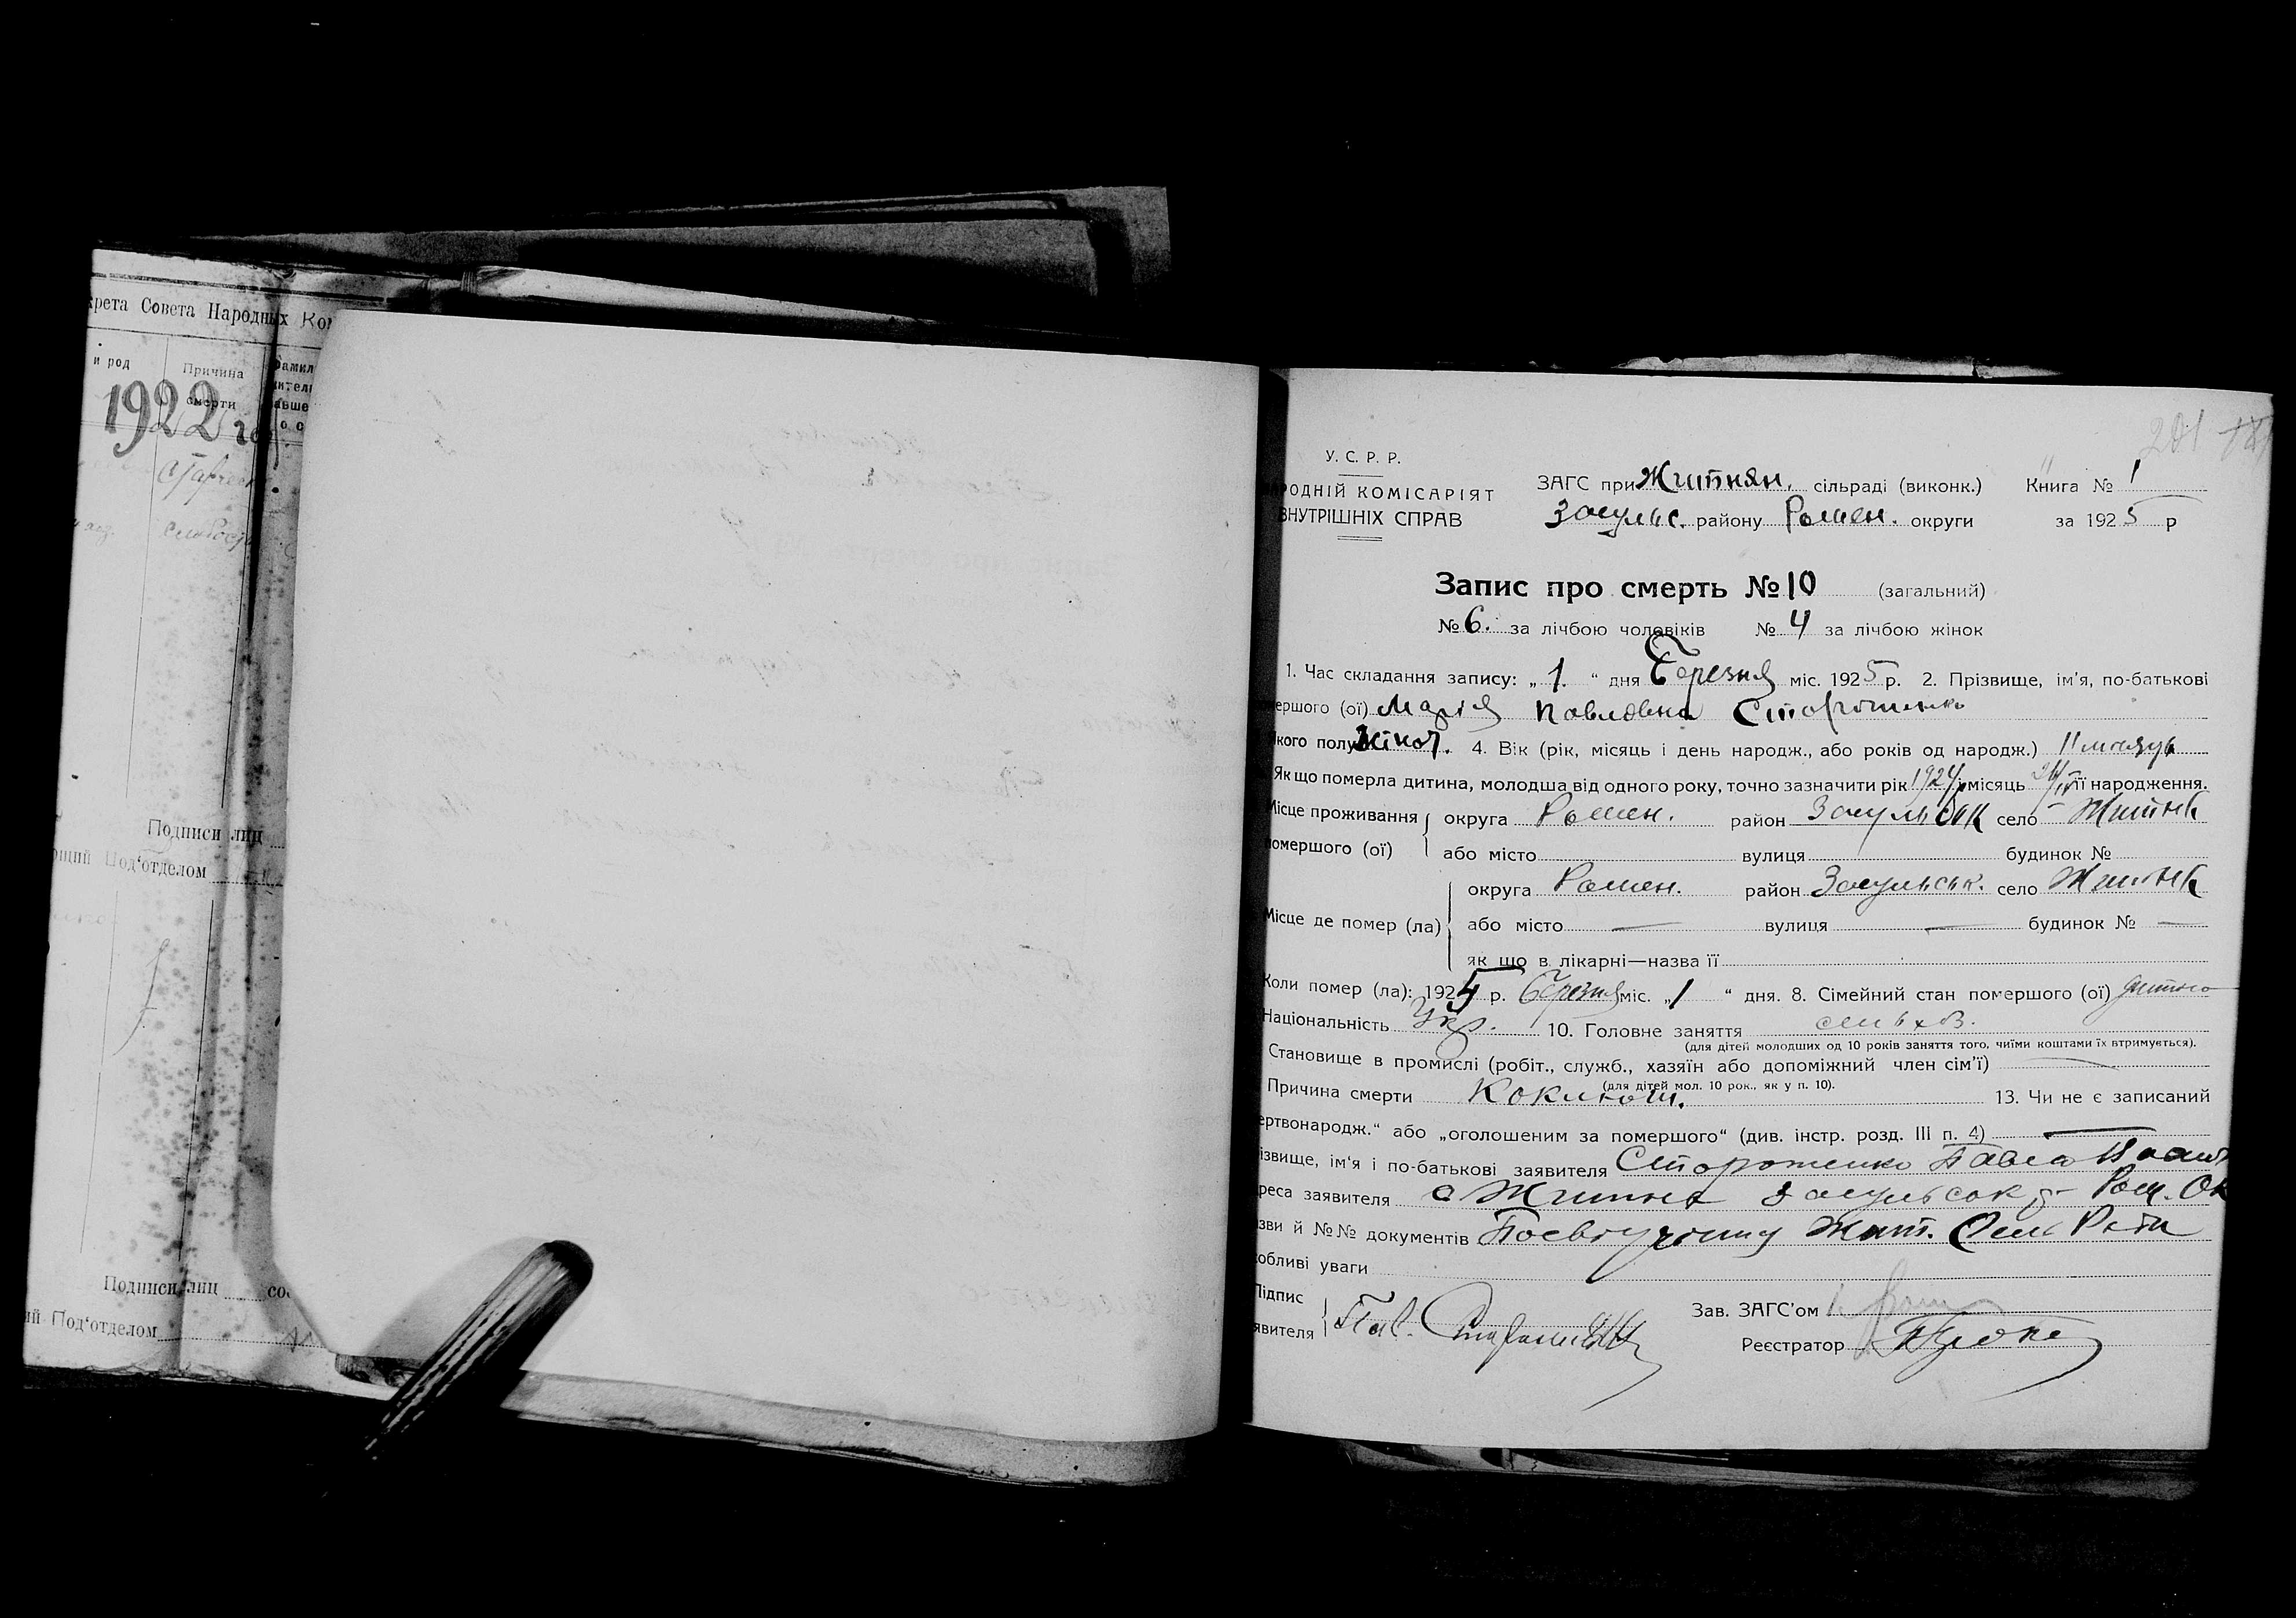 крета Совета Народных Ко
и род
Причина
смерти
1922 го
Подписи лиц
Под'отделом
Подписи лиц со
ий Под'отделом
201
У. С. Р. Р.
РОДНІЙ КОМІСАРІЯТ
ВНУТРІШНІХ СПРАВ
ЗАГС при Житнян. сільраді (виконк.) Книга № 1
Засульс. району Ромен. округи за 1925 р
Запис про смерть № 10 (загальний)
№ 6. за лічбою чоловіків № 4 за лічбою жінок
1. Час складання запису: „ 1. “ дня Березня міс. 1925 р. 2. Прізвище, ім'я, по-батькові
мершого (ої) Марія Павловна Стороженко
якого полу жіноч. 4. Вік (рік, місяць і день народж., або років од народж.) 11 місяців
Як що померла дитина, молодша від одного року, точно зазначити рік 1924 місяць її народження.
Місце проживання округа Ромен. район Засульськ село Житнє
помершого (ої) або місто вулиця будинок №
округа Ромен. район Засульськ. село Житнє
Місце де помер (ла) або місто — вулиця — будинок № —
як що в лікарні—назва її
Коли помер (ла): 1925 р. Березня міс. „ 1 “ дня. 8. Сімейний стан помершого (ої) дитина
Національність Укр. 10. Головне заняття сельхоз.
(для дітей молодших од 10 років заняття того, чиїми коштами їх втримується).
Становище в промислі (робіт., служб., хазяїн або допоміжний член сім'ї) —
(для дітей мол. 10 рок., як у п. 10).
Причина смерти Коклюш. 13. Чи не є записаний
ертвонародж.“ або „оголошеним за помершого“ (див. інстр. розд. III п. 4) —
ізвище, ім'я і по-батькові заявителя Стороженко Павло
реса заявителя с Житнє Засульськ Ром. Ок
зви й №№ документів Жит. Сель Ради
собливі уваги
Підпис
явителя Пав. Стороженко
Зав. ЗАГС'ом
Реєстратор